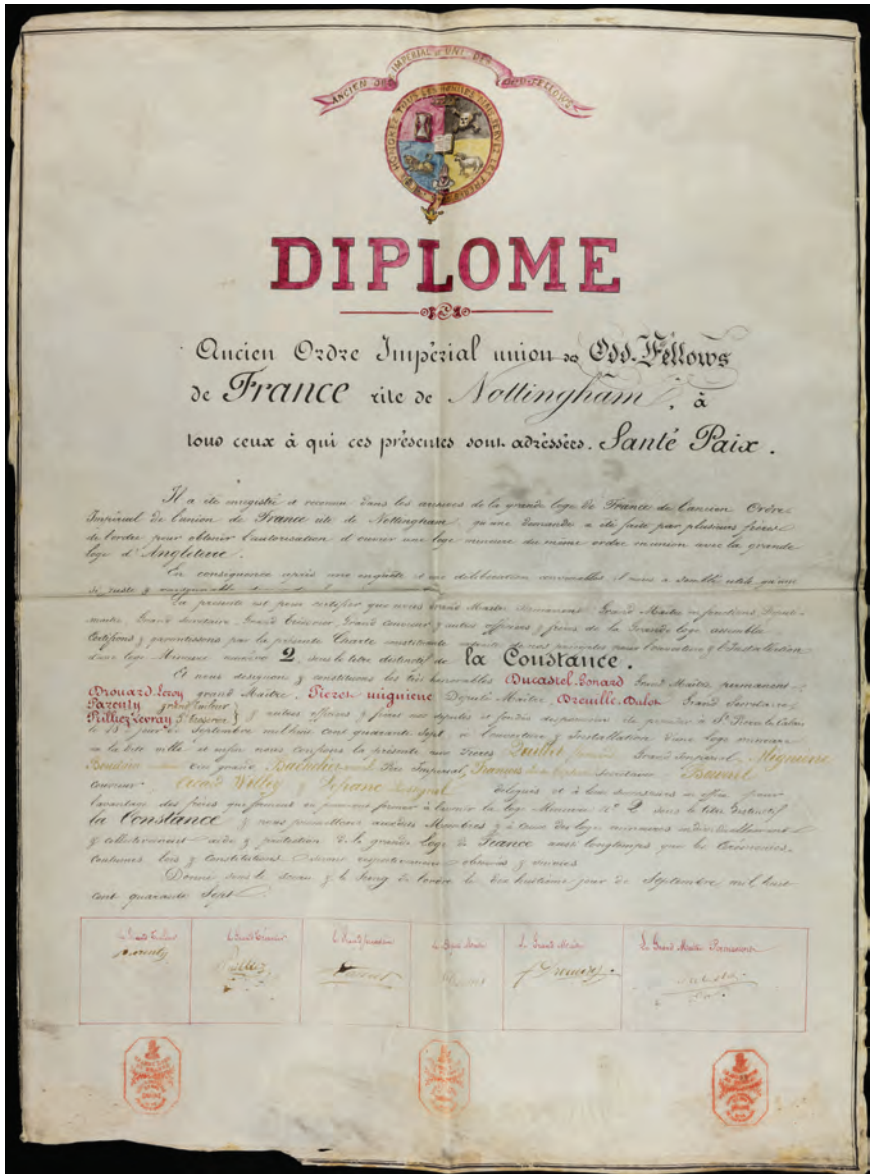 ANCIEN ORD IMPERIAL UNI DES ODD-FELLOWS
HONOREZ TOUS LES HOMMES
DIPLOME
Ancien Ordre Impérial union des Odd-Fellows
de France rite de Nottingham, à
tous ceux à qui ces présentes sont adressées. Santé Paix.
Il a été enregistré et reconnu dans les archives de la grande loge de France de l'ancien Ordre
Impérial de l'union de France rite de Nottingham, qu'une demande a été faite par plusieurs frères
de l'ordre pour obtenir l'autorisation d'ouvrir une loge mineure du même ordre en union avec la grande
loge d'Angleterre.
En conséquence après une enquête et une délibération convenables il nous a semblé utile qu'une
si juste &
La présente est pour certifier que nous Grand Maitre Permanent, Grand Maitre en fonctions, Député
Maitre, Grand Secrétaire, Grand Trésorier, Grand Couvreur & autres officiers & frères de la Grande loge assemblée
Certifions & garantissons par la présente Charte constituante
d'une loge Mineure numéro 2, sous le titre distinctif de la Constance.
Et nous désignons & constituons les très honorables Ducastel-Esnard Grand Maitre permanent
Drouard-Leroy grand Maitre, Pieret-mignienc Député Maitre, Dreuille-Dalot Grand Secrétaire
Parenty grand Tuileur
Pilliez Levray & autres officiers & frères nos députés et fondés de pouvoir de procéder à St Pierre les Calais
le 18 jour de Septembre mil huit cent quarante sept, à l'ouverture & Installation d'une loge mineure
en la dite ville et enfin nous confions la présente aux frères Grand Impérial,
Boudin Vice grand, Bachelier Père Impérial, Secrétaire
couvreur, Willey & délégués et à leurs successeurs en office pour
l'avantage des frères qui forment ou pourront former à l'avenir la loge Mineure N° 2 sous le titre distinctif
la Constance & nous promettons auxdits Membres & à ceux des loges mineures individuellement
& collectivement aide & protection de la grande Loge de France aussi longtemps que les Cérémonies,
Coutumes, lois & Constitutions seront observées &
Donné sous le sceau & le seing de l'ordre le dix huitième jour de Septembre mil huit
cent quarante Sept
Le Grand Tuileur Le Grand Trésorier Le Grand Le Député Maitre Le Grand Maitre Le Grand Maitre Permanent
Parenty Pilliez